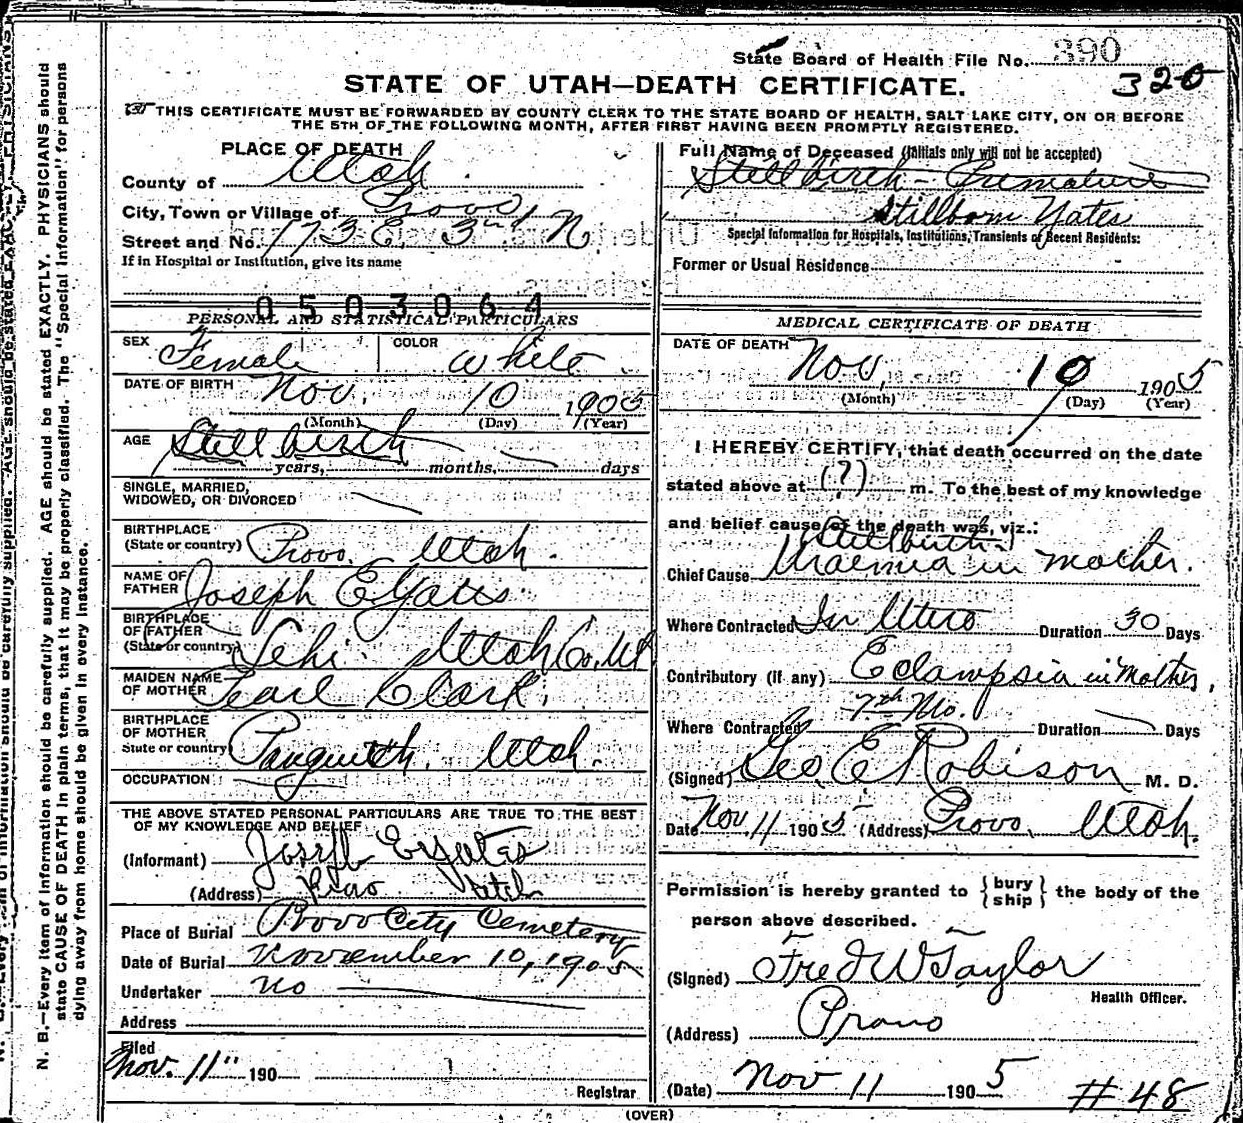 State Board of Health File No. 390
320
STATE OF UTAH—DEATH CERTIFICATE.
THIS CERTIFICATE MUST BE FORWARDED BY COUNTY CLERK TO THE STATE BOARD OF HEALTH, SALT LAKE CITY, ON OR BEFORE
THE 5TH OF THE FOLLOWING MONTH, AFTER FIRST HAVING BEEN PROMPTLY REGISTERED.
PLACE OF DEATH
County of Utah
City, Town or Village of Provo,
Street and No. 173 E. 3rd N
If in Hospital or Institution, give its name
0503064
PERSONAL AND STATISTICAL PARTICULARS
SEX Female COLOR White
DATE OF BIRTH Nov. 10 1905
(Month) (Day) (Year)
AGE Stillbirth
years, months, days
SINGLE, MARRIED,
WIDOWED, OR DIVORCED
BIRTHPLACE
(State or country) Provo. Utah.
NAME OF
FATHER Joseph E Yates
BIRTHPLACE
OF FATHER
(State or country) Lehi. Utah Co. Ut
MAIDEN NAME
OF MOTHER Pearl Clark.
BIRTHPLACE
OF MOTHER
State or country) Panguitch, Utah.
OCCUPATION
THE ABOVE STATED PERSONAL PARTICULARS ARE TRUE TO THE BEST
OF MY KNOWLEDGE AND BELIEF
(Informant) Joseph E Yates
(Address) Provo Utah
Place of Burial Provo City Cemetery
Date of Burial November 10, 1905
Undertaker no
Address
Filed
Nov. 11" 190
Registrar
Full Name of Deceased (Initials only will not be accepted)
Stillbirth - Premature
Stillborn Yates
Special Information for Hospitals, Institutions, Transients or Recent Residents:
Former or Usual Residence
MEDICAL CERTIFICATE OF DEATH
DATE OF DEATH Nov, 10 1905
(Month) (Day) (Year)
I HEREBY CERTIFY, that death occurred on the date
stated above at (?) m. To the best of my knowledge
and belief cause of the death was, viz.:
Stillbirth.
Chief Cause Uraemia in mother.
Where Contracted In Utero Duration 30 Days
Contributory (if any) Eclampsia in Mother,
7th Mo.
Where Contracted Duration Days
(Signed) Geo. E Robison M. D.
Date Nov 11 1905 (Address) Provo, Utah.
Permission is hereby granted to {bury ship} the body of the
person above described.
(Signed) Fred W Taylor
Health Officer.
(Address) Provo
(Date) Nov 11 1905
# 48
(OVER)
N. B.—Every item of information should be carefully supplied. AGE should be stated EXACTLY. PHYSICIANS should
state CAUSE OF DEATH in plain terms, that it may be properly classified. The "Special Information" for persons
dying away from home should be given in every instance.